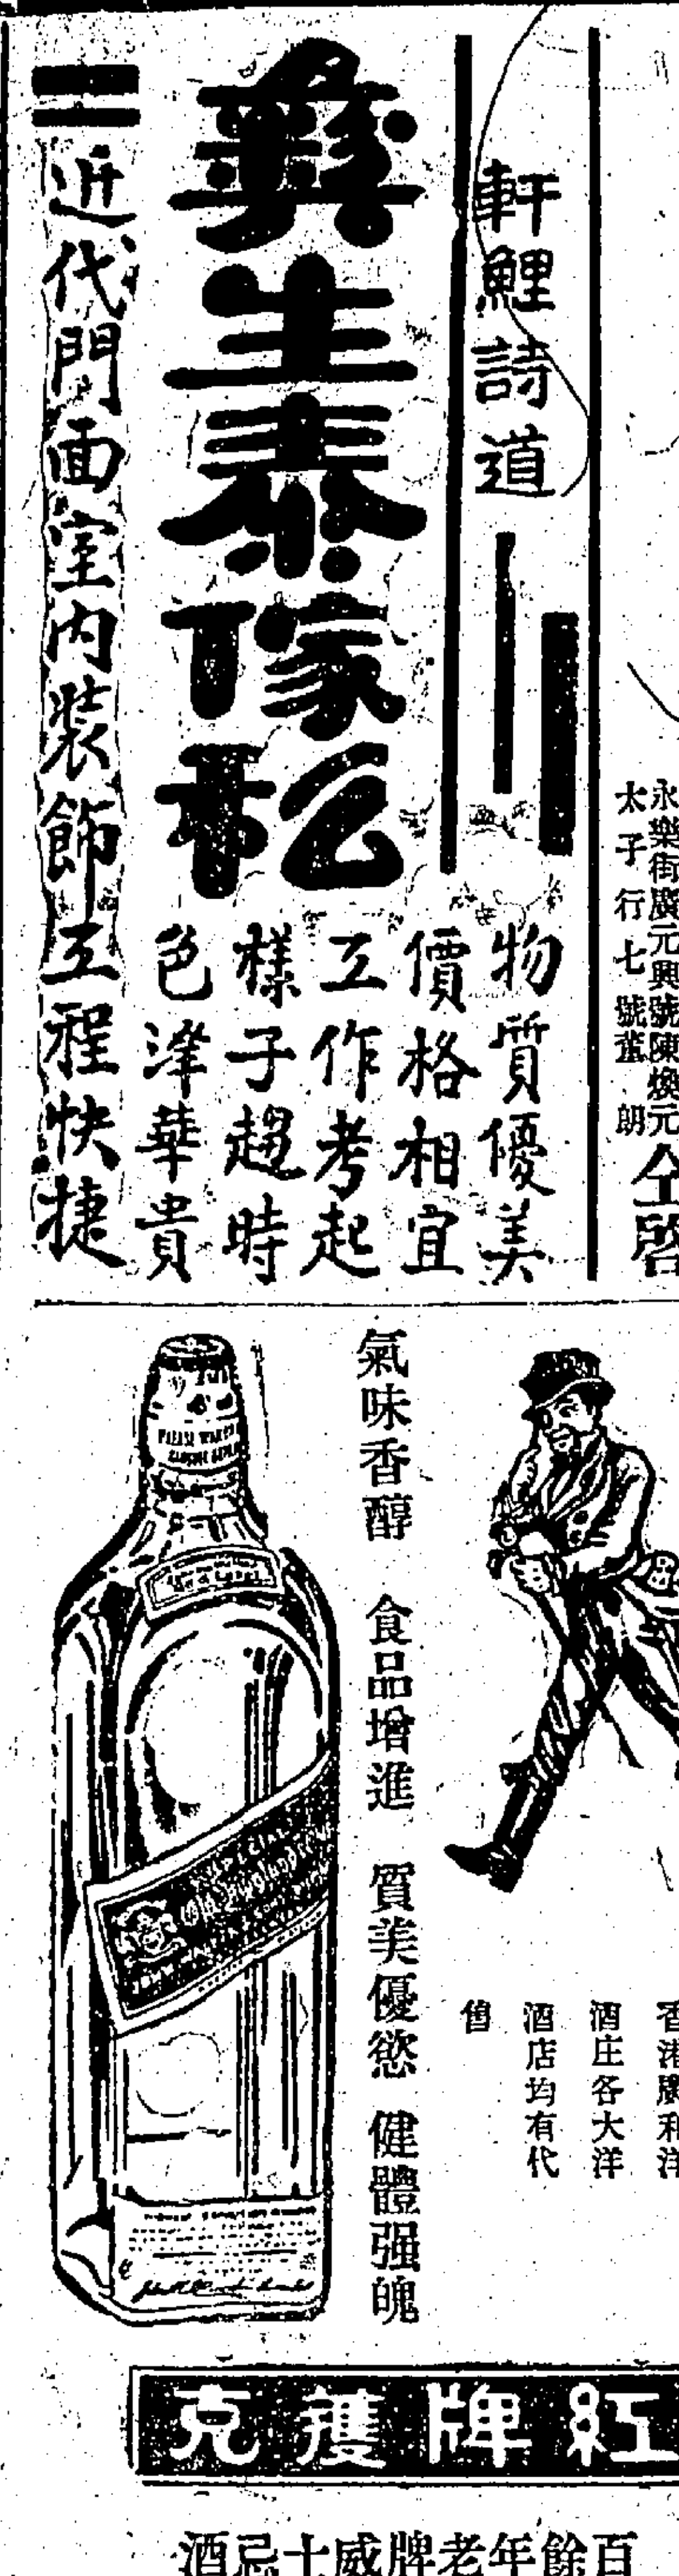 永樂街廣元興號陳煥元
太子行七號舊朗
仝啓
軒鯉詩道
彝生泰傢私
物質優美
價格相宜
工作考起
樣子趨時
色澤華貴
近代門面室內裝飾工程快捷
香港廣和洋
酒庄各大洋
酒店均有代
售
氣味香醇 食品增進 質美優慾 健體强魄
紅牌獲克
百餘年老牌威士忌酒